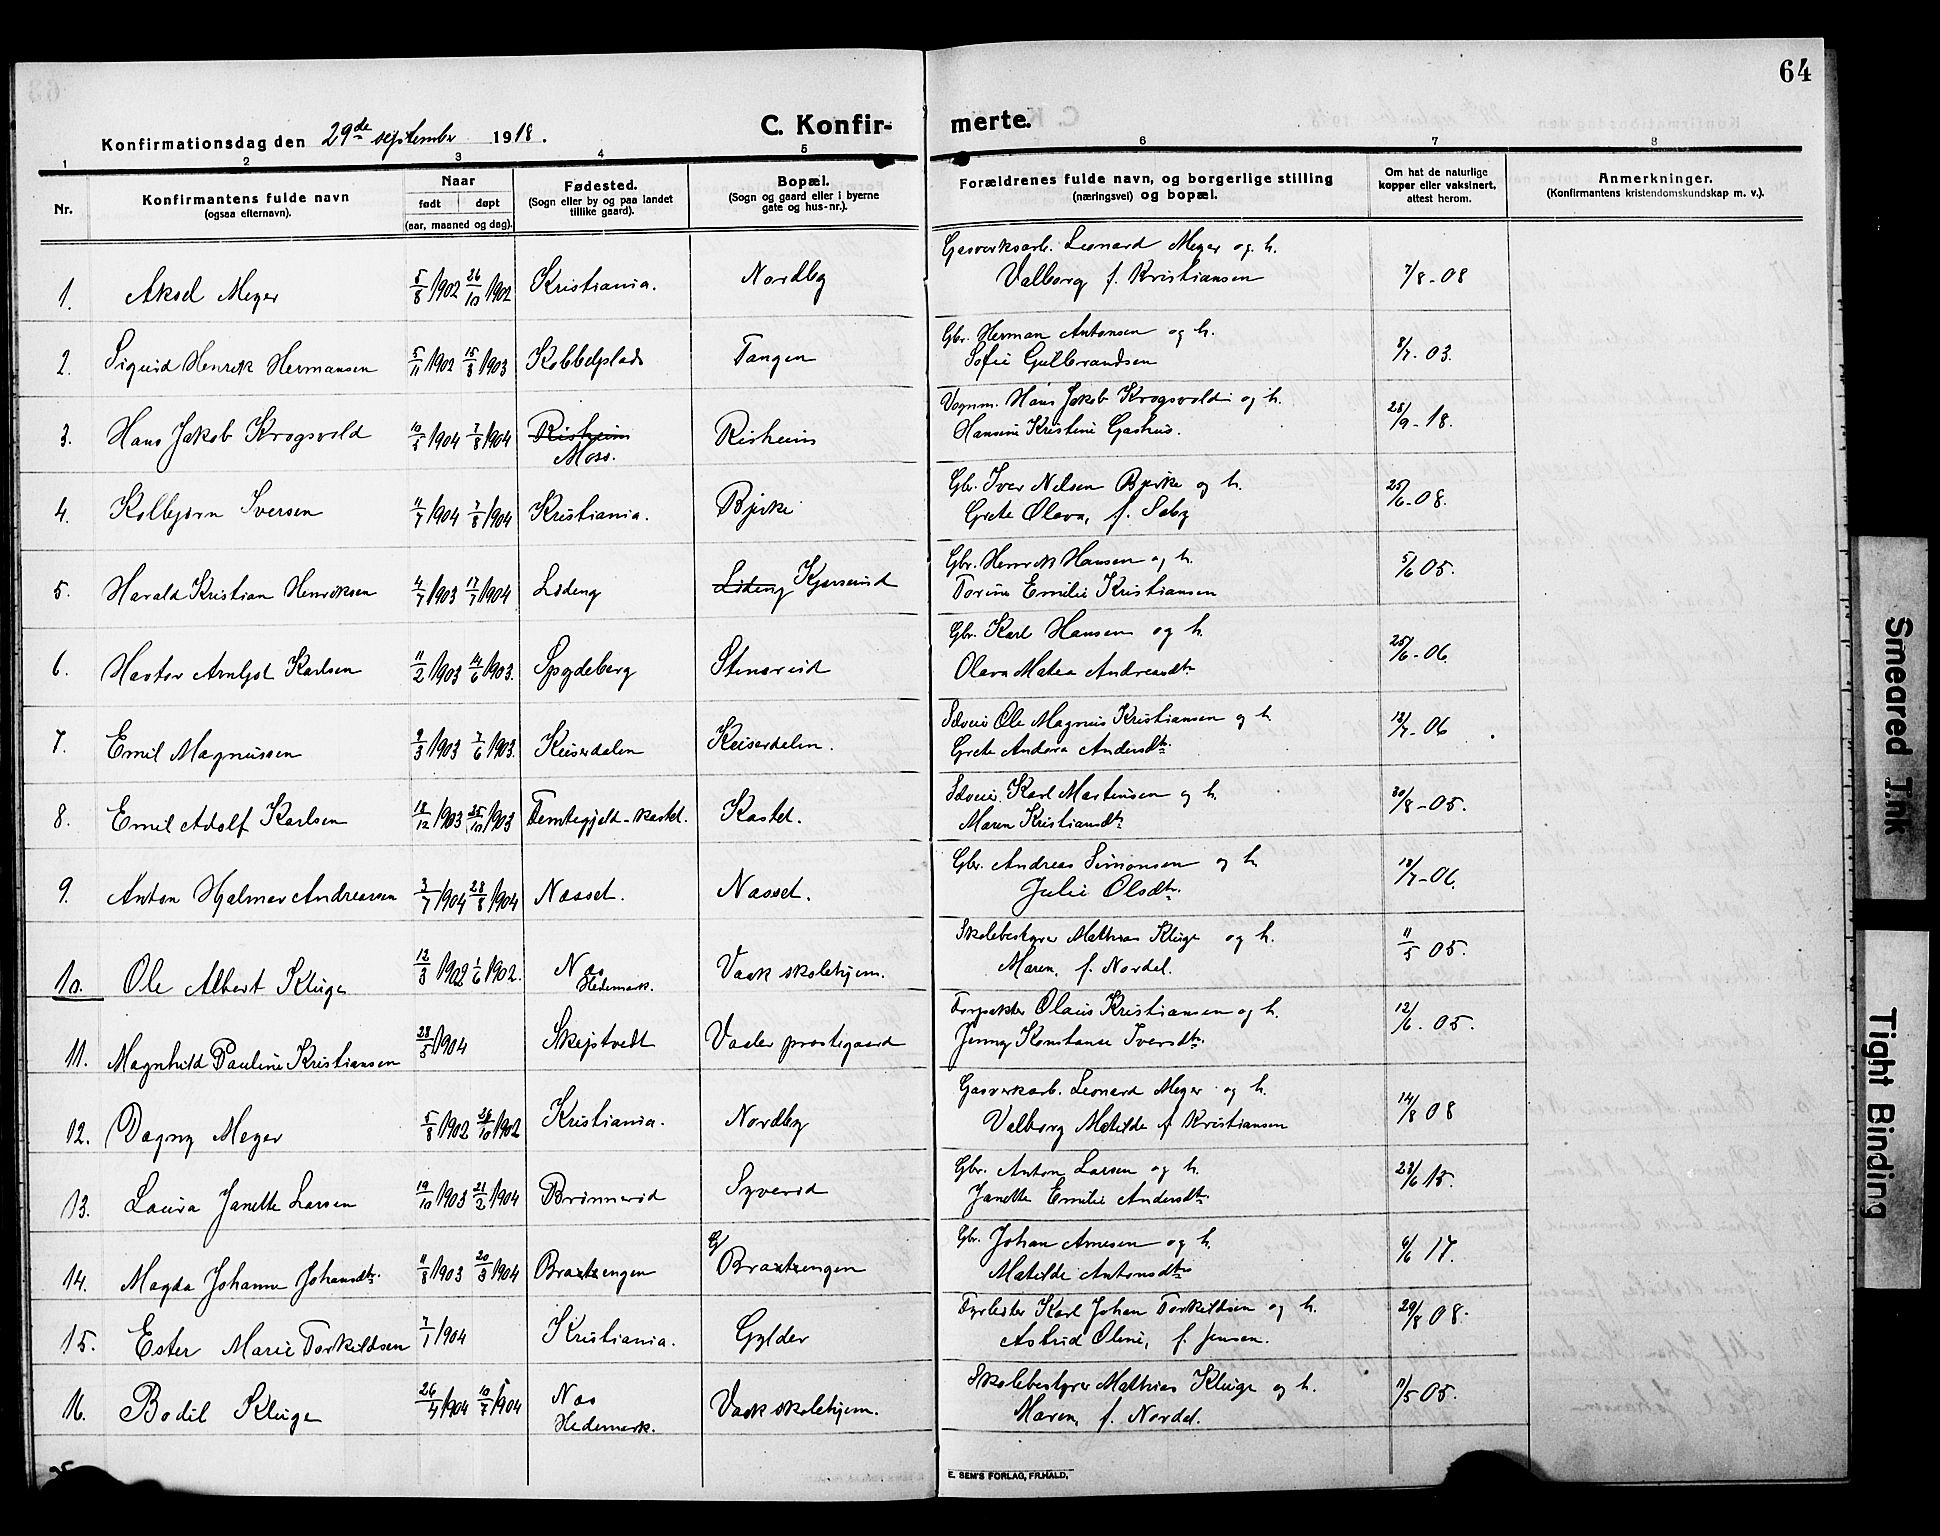 64
Konfirmationsdag den 29de september 1918.
C. Konfir-
merte.
1 2 3 4 5 6 7 8
Nr.
Konfirmantens fulde navn (ogsaa efternavn).
Naar
født døpt
(aar, maaned og dag).
Fødested. (Sogn eller by og paa landet tillike gaard).
Bopæl. (Sogn og gaard eller i byerne gate og hus-nr.).
Forældrenes fulde navn, og borgerlige stilling (næringsvei) og bopæl.
Om hat de naturlige kopper eller vaksinert, attest herom.
Anmerkninger. (Konfirmantens kristendomskundskap m. v.).
1. Aksel Meyer 5/8 1902 26/10 1902 Kristiania. Nordby Gasverksarb. Leonard Meyer og h. Valborg f. Kristiansen 7/8-08
2. Sigurd Henrik Hermansen 5/11 1902 15/3 1903 Kobbelplads Tangen Gbr. Herman Antonsen og h. Sofie Gulbrandsen 8/7-03.
3. Hans Jakob Krogsvold 10/5 1904 7/8 1904 Risheim Moss. Risheim Vognm. Hans Jakob Krogsvold og h. Hansine Kristine Gashus. 28/9-18.
4. Kolbjørn Iversen 11/7 1904 7/8 1904 Kristiania. Bjirke Gbr. Iver Nilsen Bjirke og h. Grete Olava, f. Saby 25/6-08.
5. Harald Kristian Henriksen 4/7 1903 17/7 1904 Lideng Lideng Kjærrerud Gbr. Henrik Hansen og h. Torine Emilie Kristiansen 5/6 05.
6. Karlsen 11/2 1903 14/6 1903. Spydeberg Stensrud Gbr. Karl Hansen og h. Olava Matea Andreasdtr. 25/6-06.
7. Emil Magnussen 9/3 1903 7/6 1903. Keiserdalen Keiserdalen. Selveier Ole Magnus Kristiansen og h. Grete Andora Andersdtr. 18/7-06
8. Emil Adolf Karlsen 18/12 1903 25/10 1903 Femtegjeld-Kastel. Kastel. Selveier Karl Martinsen og h. Maren Kristiansdtr. 30/8-05.
9. Anton Hjalmar Andreassen 3/7 1904 28/8 1904 Næsset. Næsset. Gbr. Andreas Simonsen og h. Julie Olsdtr. 18/7-06.
10. Ole Albert Kluge 12/3 1902 1/6 1902. Næs Hedemark. Vaak skolehjem. Skolebestyrer Mathias Kluge og h. Maren, f. Nordel. 11/5 05.
11. Magnhild Pauline Kristiansen 28/5 1904 Skejstvedt Vaaler prestegaard Forpakter Olaus Kristiansen og h. Jenny Konstanse Iversdtr. 12/6. 05.
12. Dagny Meyer 5/8 1902 26/10 1902 Kristiania. Nordby Gasverkarb. Leonard Meyer og h. Valborg Matilde f. Kristiansen 14/8 08
13. Laura Janette Larsen 19/10 1903 21/2 1904 Brønnerød Syverud Gbr. Anton Larsen og h. Janette Emilie Andersdtr. 23/6 15.
14. Magda Johanne Johansdtr. 11/8 1903 20/3 1904 Bratengen Bratengen Gbr. Johan Arnesen og h. Matilde Antonsdtr. 6/6 17.
15. Ester Marie Torkildsen 7/1 1904 Kristiania. Gylder Fyrbøter Karl Johan Torkildsen og h. Astrid Oline, f. Jensen. 29/8 08.
16. Bodil Kluge 26/4 1904 10/7 1904 Næs Hedemark. Vaak skolehjem. Skolebestyrer Mathias Kluge og h. Maren, f. Nordel. 11/5 05.
E. SEM'S FORLAG, FR.HALD,
Smeared Ink
Tight Binding